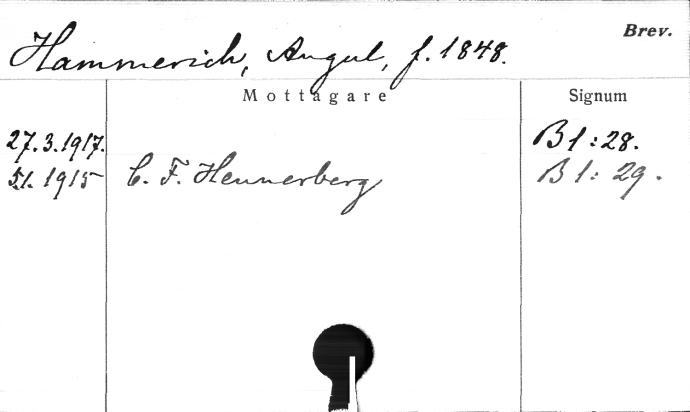 Brev.
Hammerich, Angul, f. 1848.
Mottagare Signum
27.3.1917. B 1:28.
5/1. 1915 C. F. Hennerberg B 1:29.